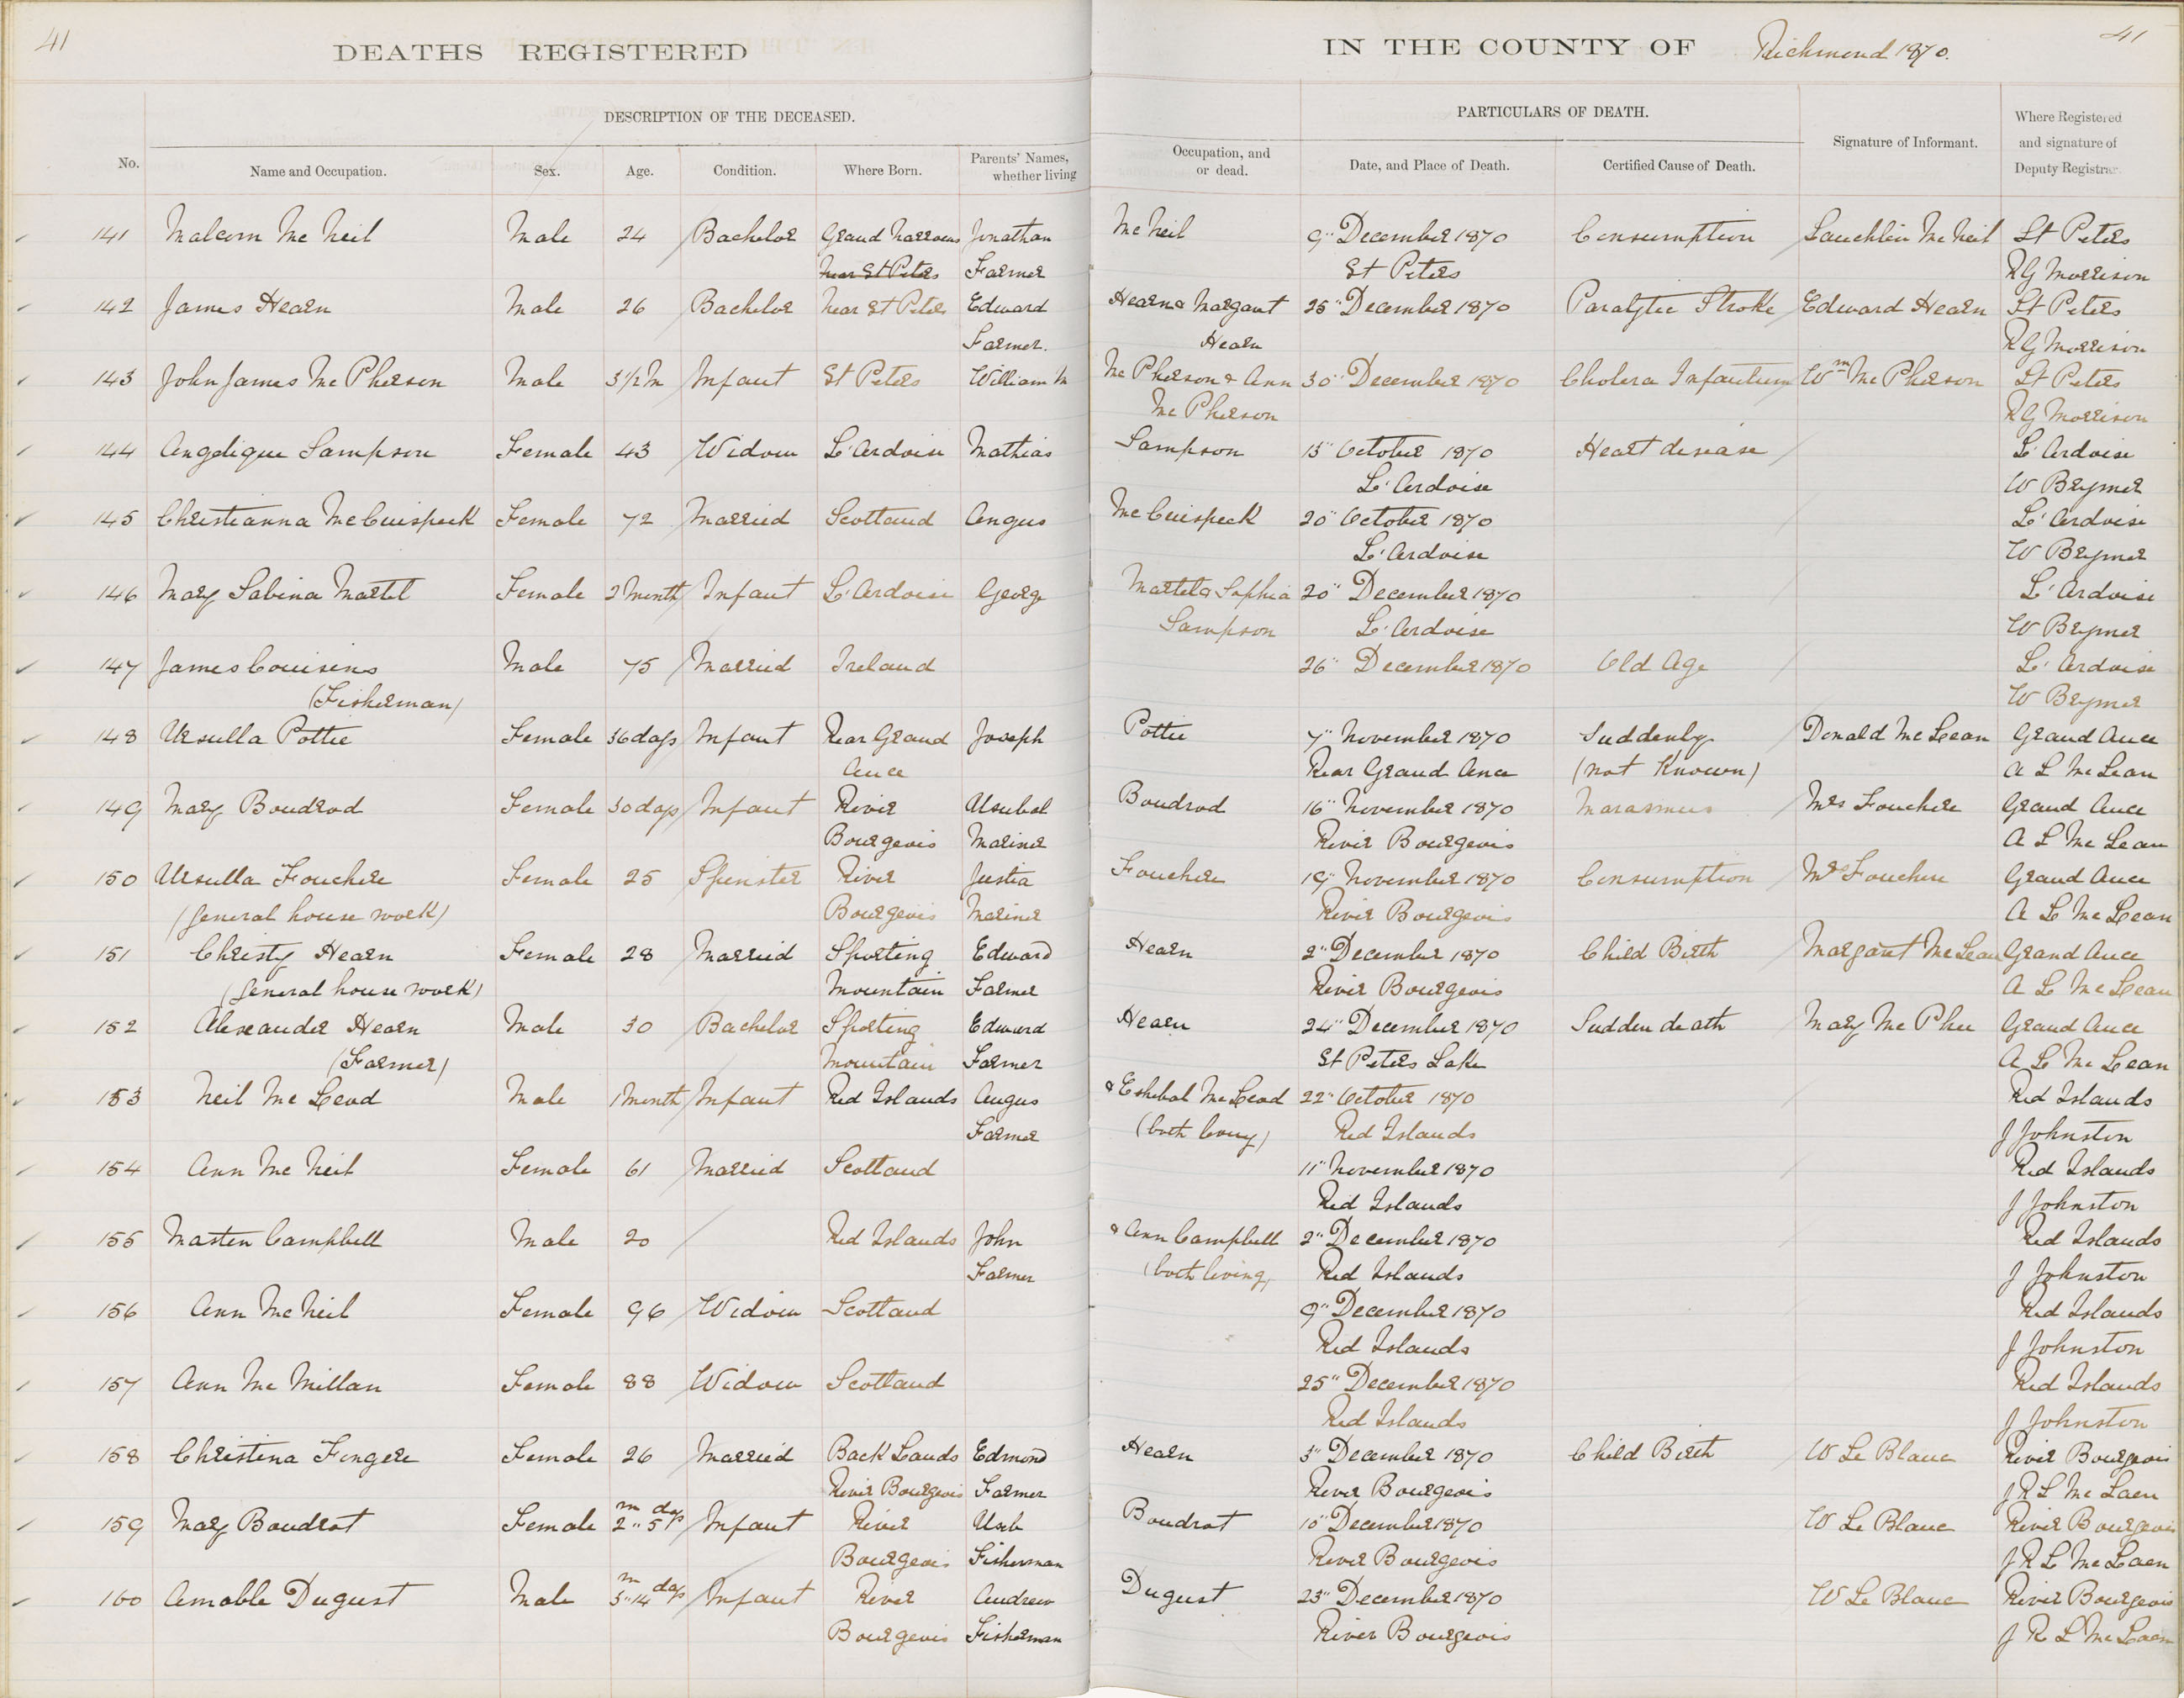 41
DEATHS REGISTERED
IN THE COUNTY OF Richmond 1870.
41
DESCRIPTION OF THE DECEASED.
PARTICULARS OF DEATH.
No. Name and Occupation. Sex. Age. Condition. Where Born. Parents' Names, whether living
Occupation, and or dead. Date, and Place of Death. Certified Cause of Death. Signature of Informant. Where Registered and signature of Deputy Registrar
141 Malcom Mc Neil Male 24 Bachelor Grand Narrows Jonathan Mc Neil 9" December 1870 Consumption Lauchlin Mc Neil St Peters
Near St Peters Farmer St Peters R G Morrison
142 James Hearn Male 26 Bachelor Near St Peters Edward Hearn & Margaut 25" December 1870 Paralytic Stroke Edward Hearn St Peters
Farmer. Hearn R G Morrison
143 John James Mc Pherson Male 3 1/2 M Infant St Peters William M Mc Pherson & Ann 30" December 1870 Cholera Infantum Wm Mc Pherson St Peters
Mc Pherson R G Morrison
144 Angelique Sampson Female 43 Widow L'Ardoise Mathias Sampson 15" October 1870 Heart disease L'Ardoise
L'Ardoise W Brymer
145 Christianna Mc Cuispeck Female 72 Married Scotland Angus Mc Cuispeck 20" October 1870 L'Ardoise
L'Ardoise W Brymer
146 Mary Sabina Martel Female 2 Month Infant L'Ardoise George Martel & Sophia 20" December 1870 L'Ardoise
Sampson L'Ardoise W Brymer
147 James Couisins Male 75 Married Ireland 26" December 1870 Old Age L'Ardoise
(Fisherman) W Brymer
148 Ursulla Pottie Female 36 days Infant Rear Grand Joseph Pottie 7" November 1870 Suddenly Donald Mc Lean Grand Ance
Ance Rear Grand Ance (not Known) A L Mc Lean
149 Mary Boudrod Female 30 days Infant River Usubal Boudrod 16" November 1870 Marasmus Mrs Fouchere Grand Ance
Bourgeois Mariner River Bourgeois A L Mc Lean
150 Ursulla Fouchere Female 25 Spinster River Justia Fouchere 19" November 1870 Consumption Mrs Fouchere Grand Ance
(general house work) Bourgeois Mariner River Bourgeois A L Mc Lean
151 Christy Hearn Female 28 Married Sporting Edward Hearn 2" December 1870 Child Birth Margaut Mc Lean Grand Ance
(general house work) Mountain Farmer River Bourgeois A L Mc Lean
152 Alexander Hearn Male 30 Bachelor Sporting Edward Hearn 24" December 1870 Sudden death Mary Mc Phee Grand Ance
(Farmer) Mountain Farmer St Peters Lake A L Mc Lean
153 Neil Mc Leod Male 1 Month Infant Red Islands Angus & Eshebal Mc Leod 22" October 1870 Red Islands
Farmer (both living) Red Islands J Johnston
154 Ann Mc Neil Female 61 Married Scotland 11" November 1870 Red Islands
Red Islands J Johnston
155 Masten Campbell Male 20 Red Islands John & Ann Campbell 2" December 1870 Red Islands
Farmer (both living) Red Islands J Johnston
156 Ann Mc Neil Female 96 Widow Scotland 9" December 1870 Red Islands
Red Islands J Johnston
157 Ann Mc Millan Female 88 Widow Scotland 25" December 1870 Red Islands
Red Islands J Johnston
158 Christena Fongere Female 26 Married Back Lands Edmond Hearn 3" December 1870 Child Birth W Le Blanc River Bourgeois
River Bourgeois Farmer River Bourgeois J R L Mc Laen
159 Mary Boudrot Female 2 m 5 days Infant River Useb Boudrot 10" December 1870 W Le Blanc River Bourgeois
Bourgeois Fisherman River Bourgeois J R L Mc Laen
160 Amable Dugust Male 5 m 14 days Infant River Andrew Dugust 23" December 1870 W Le Blanc River Bourgeois
Bourgeois Fisherman River Bourgeois J R L Mc Laen